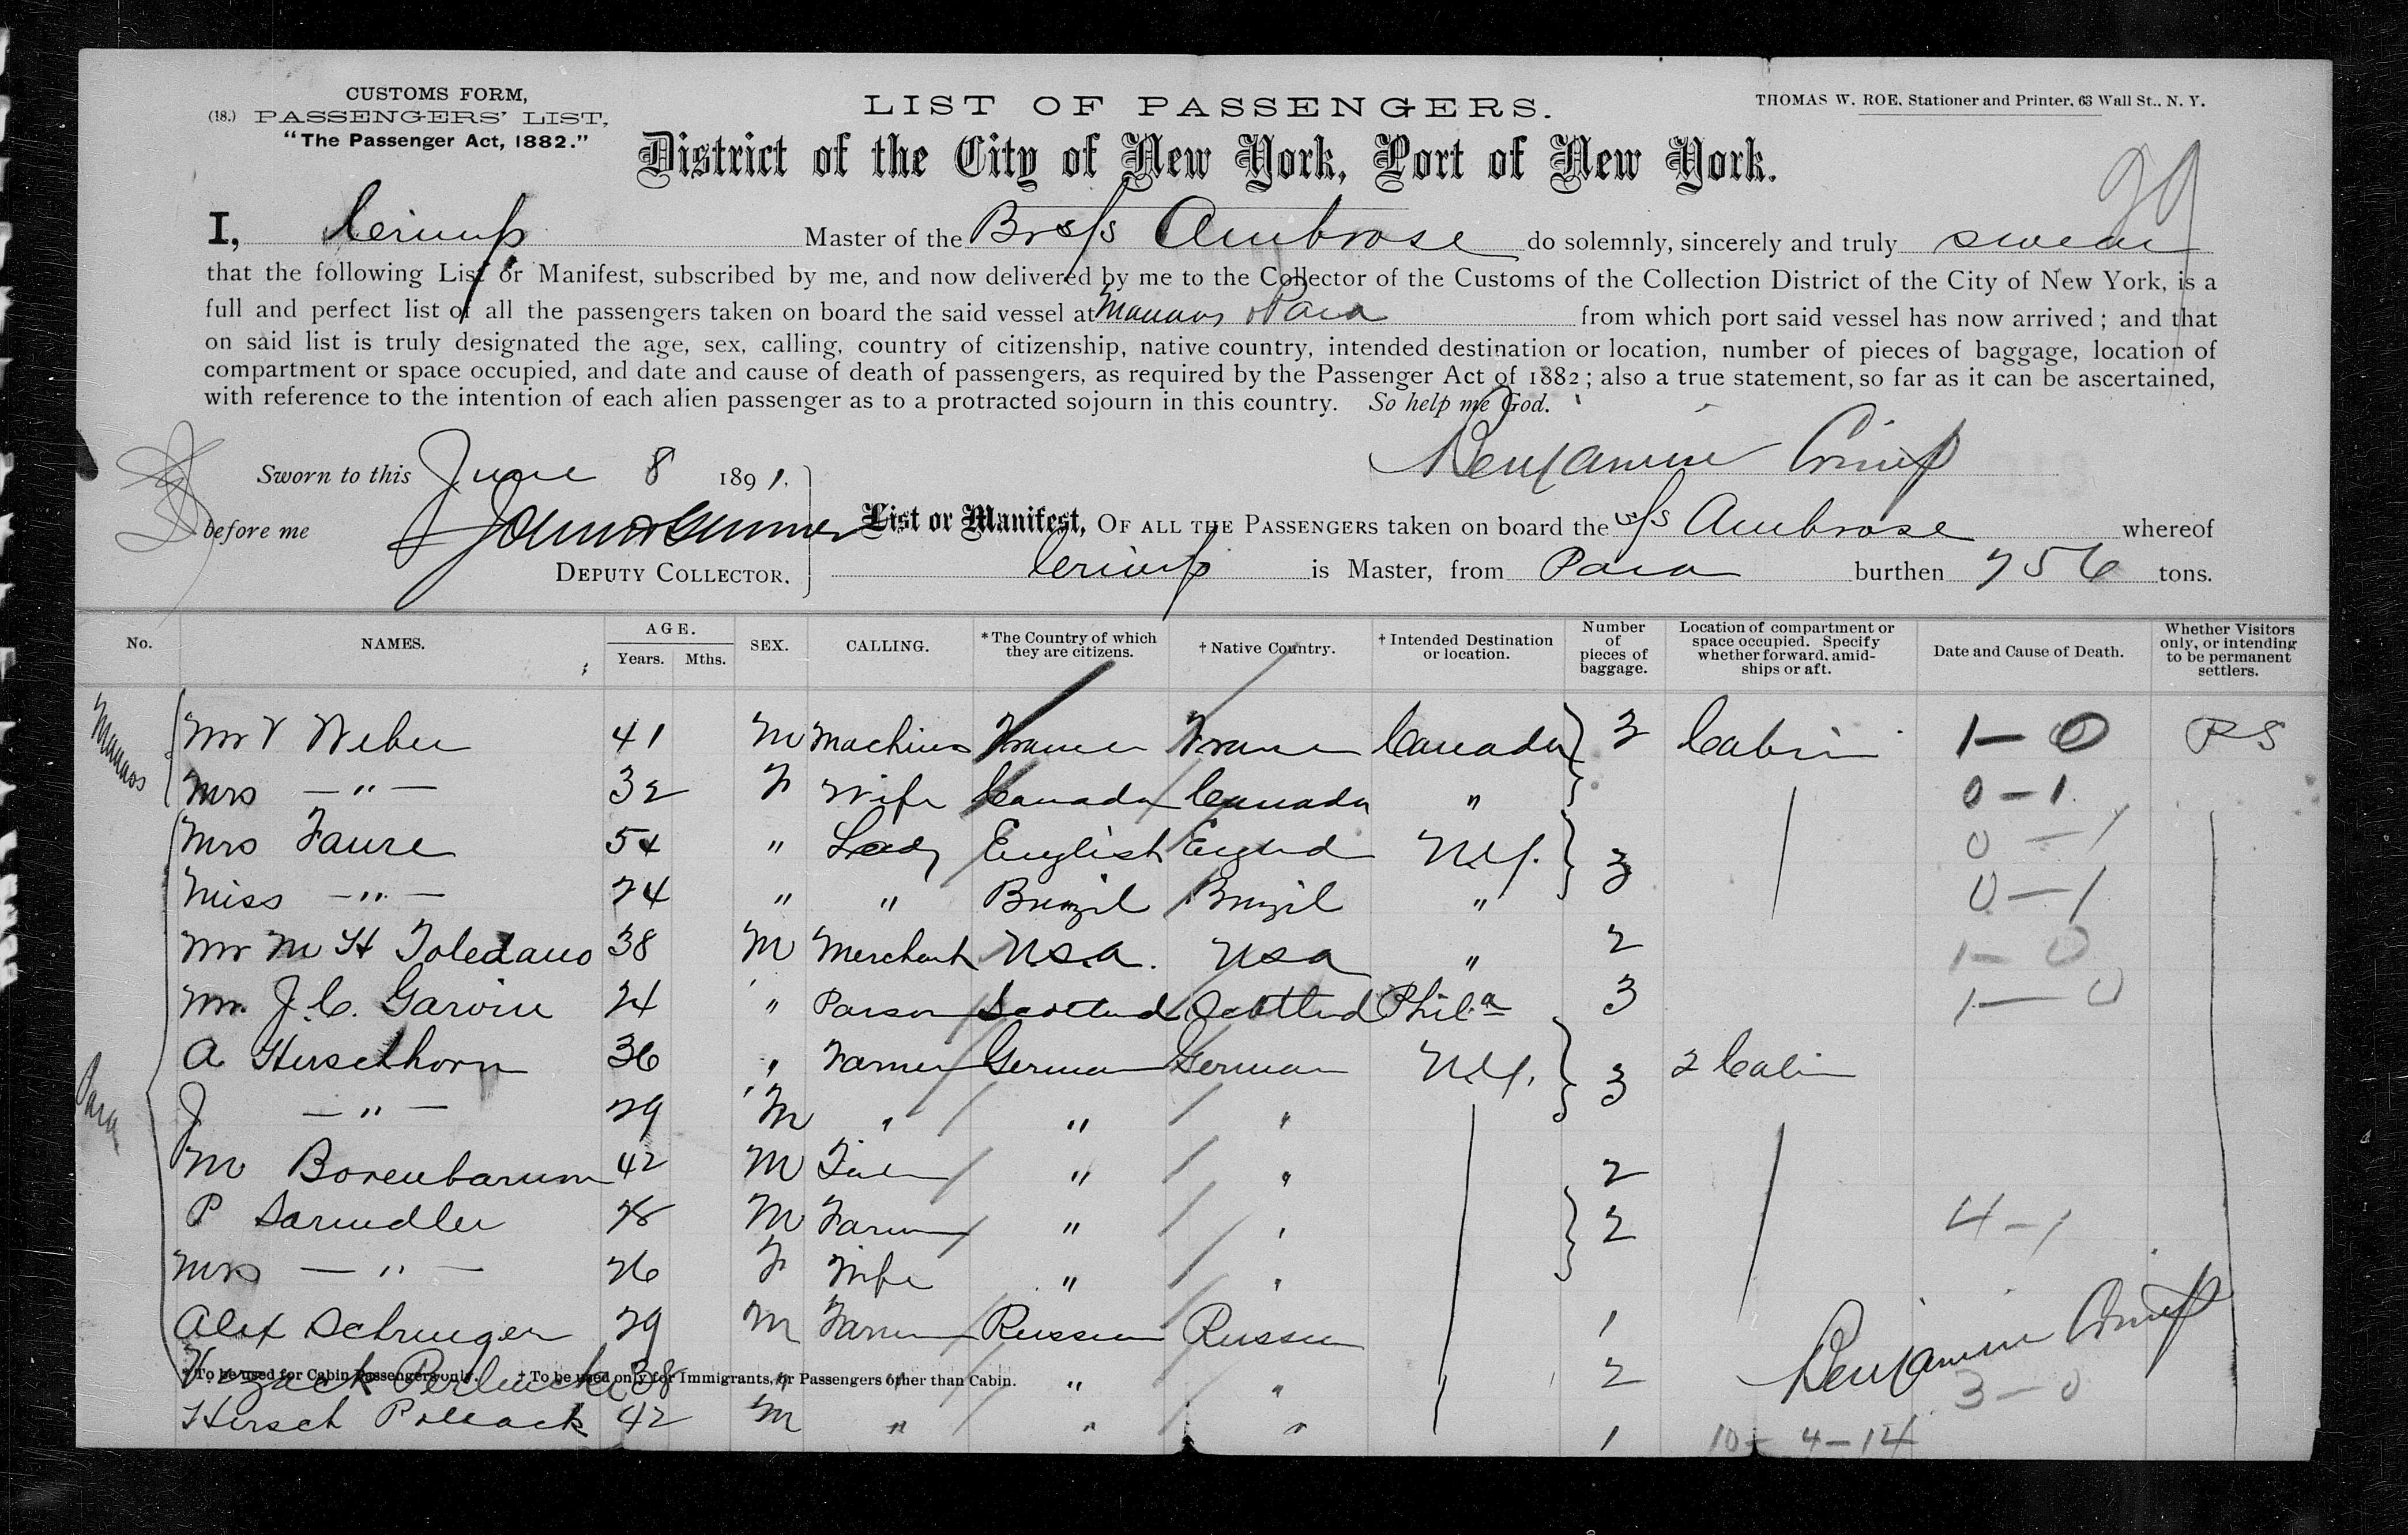 CUSTOMS FORM,
(18.) PASSENGERS' LIST,
"The Passenger Act, 1882."
LIST OF PASSENGERS.
THOMAS W. ROE, Stationer and Printer, 63 Wall St., N. Y.
District of the City of New York, Port of New York.
I, Crimp Master of the Br s/s Ambrose do solemnly, sincerely and truly swear
that the following List or Manifest, subscribed by me, and now delivered by me to the Collector of the Customs of the Collection District of the City of New York, is a
full and perfect list of all the passengers taken on board the said vessel at Manaos & Para from which port said vessel has now arrived; and that
on said list is truly designated the age, sex, calling, country of citizenship, native country, intended destination or location, number of pieces of baggage, location of
compartment or space occupied, and date and cause of death of passengers, as required by the Passenger Act of 1882; also a true statement, so far as it can be ascertained,
with reference to the intention of each alien passenger as to a protracted sojourn in this country. So help me God.
Benjamin Crimp
Sworn to this June 8 1891.
before me
DEPUTY COLLECTOR.
List or Manifest, OF ALL THE PASSENGERS taken on board the s/s Ambrose whereof
Crimp is Master, from Para burthen 756 tons.
No. NAMES. AGE. Years. Mths. SEX. CALLING. *The Country of which they are citizens. †Native Country. †Intended Destination or location. Number of pieces of baggage. Location of compartment or space occupied. Specify whether forward, amidships or aft. Date and Cause of Death. Whether Visitors only, or intending to be permanent settlers.
Manaos
Mr V Weber 41 M France France Canada 3 Cabin 1-0 PS
Mrs -"- 32 F Wife Canada Canada " 0-1
Mrs Faure 54 " Lady English England N.Y. 3 0-1
Miss -"- 24 " " Brazil Brazil " 0-1
Mr M H Toledano 38 M Merchant U.S.A. USA " 2 1-0
Mr. J. C. Garvin 24 " Parson Scotland Scotland Phila 3 1-0
Para
A Herschhorn 36 " Farmer German German N.Y. 3 2 Cabin
J -"- 29 M " " "
M 42 M " " 2
P 28 M Farmer " " 2 4-1
Mrs -"- 26 F Wife " "
Alex 29 M Farmer Russian Russian 1
38 " " " " 2
Benjamin Crimp
3-0
*To be used for Cabin Passengers only. †To be used only for Immigrants, or Passengers other than Cabin.
Hersch Pollack 42 M " " " 1 10-4-14